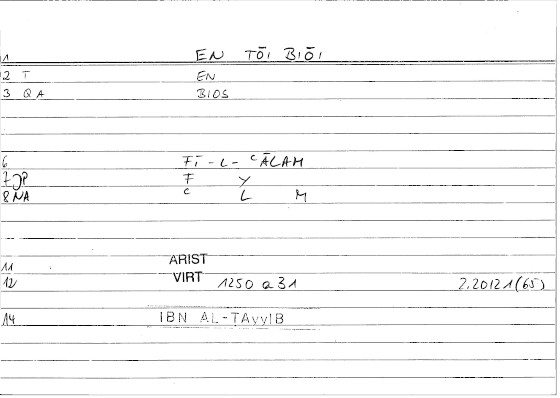 1 EN TŌI BIŌI
2 T EN
3 QA BIOS
6 FĪ-L-ᶜĀLAM
7 JP F Y
8 NA ᶜ L M
11 ARIST
12 VIRT 1250 a 31 2.20121(65)
14 IBN AL-TAyyIB